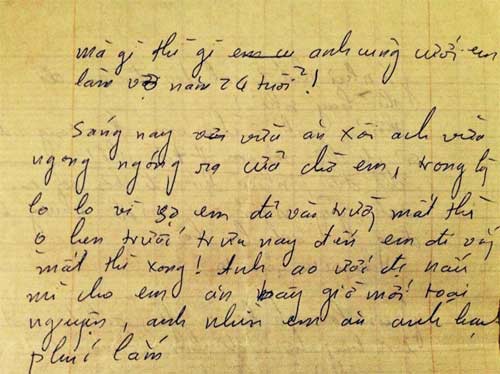 mà gì thì gì em cu anh cũng cưới em
làm vợ năm 24 tuổi!
Sáng nay vừa ăn xôi anh vừa
ngong ngóng ra cửa chờ em, trong lòng
lo lo vì sợ em đã vào trường mất thì
o hẹn trước trưa nay đến em đi vắng
mất thì xong! Anh ao ước đc nấu
mì cho em ăn bây giờ mới toại
nguyện, anh nhìn em ăn anh hạnh
phúc lắm